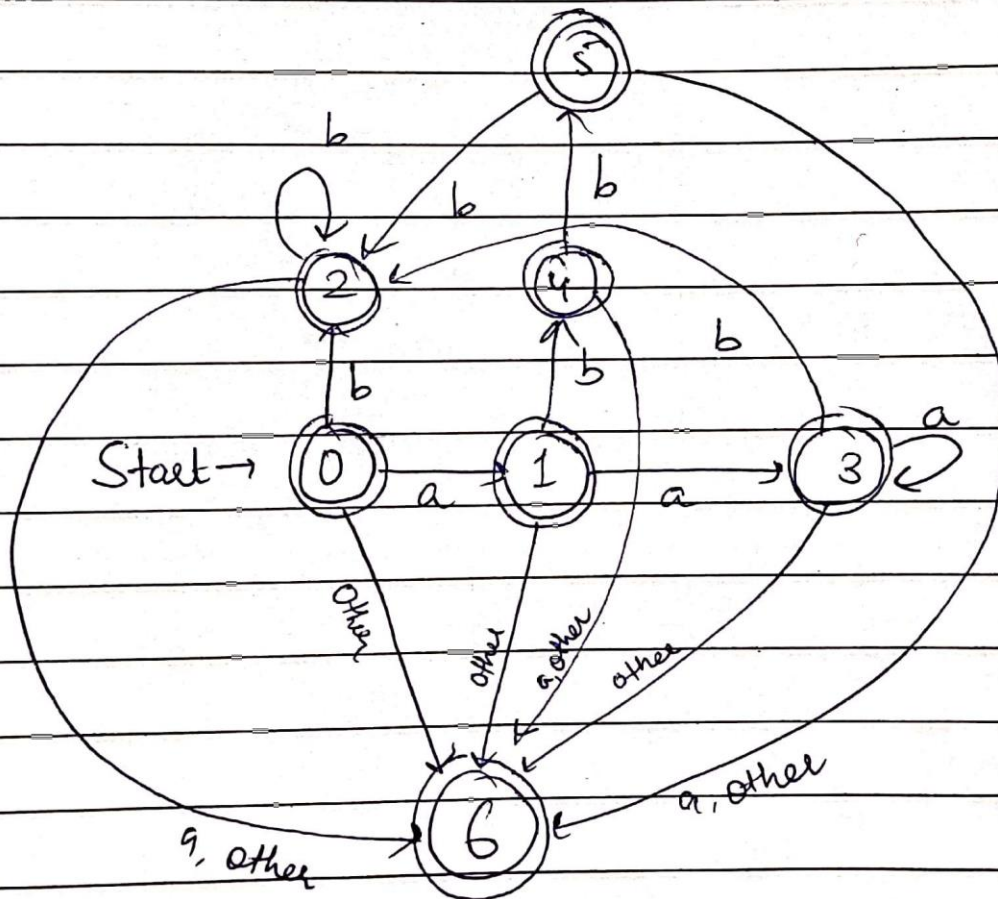 5
b
b
b
2
4
b
b
b
a
Start → 0
a
1
a
3
Other
other
a, other
other
a, other
6
a, other